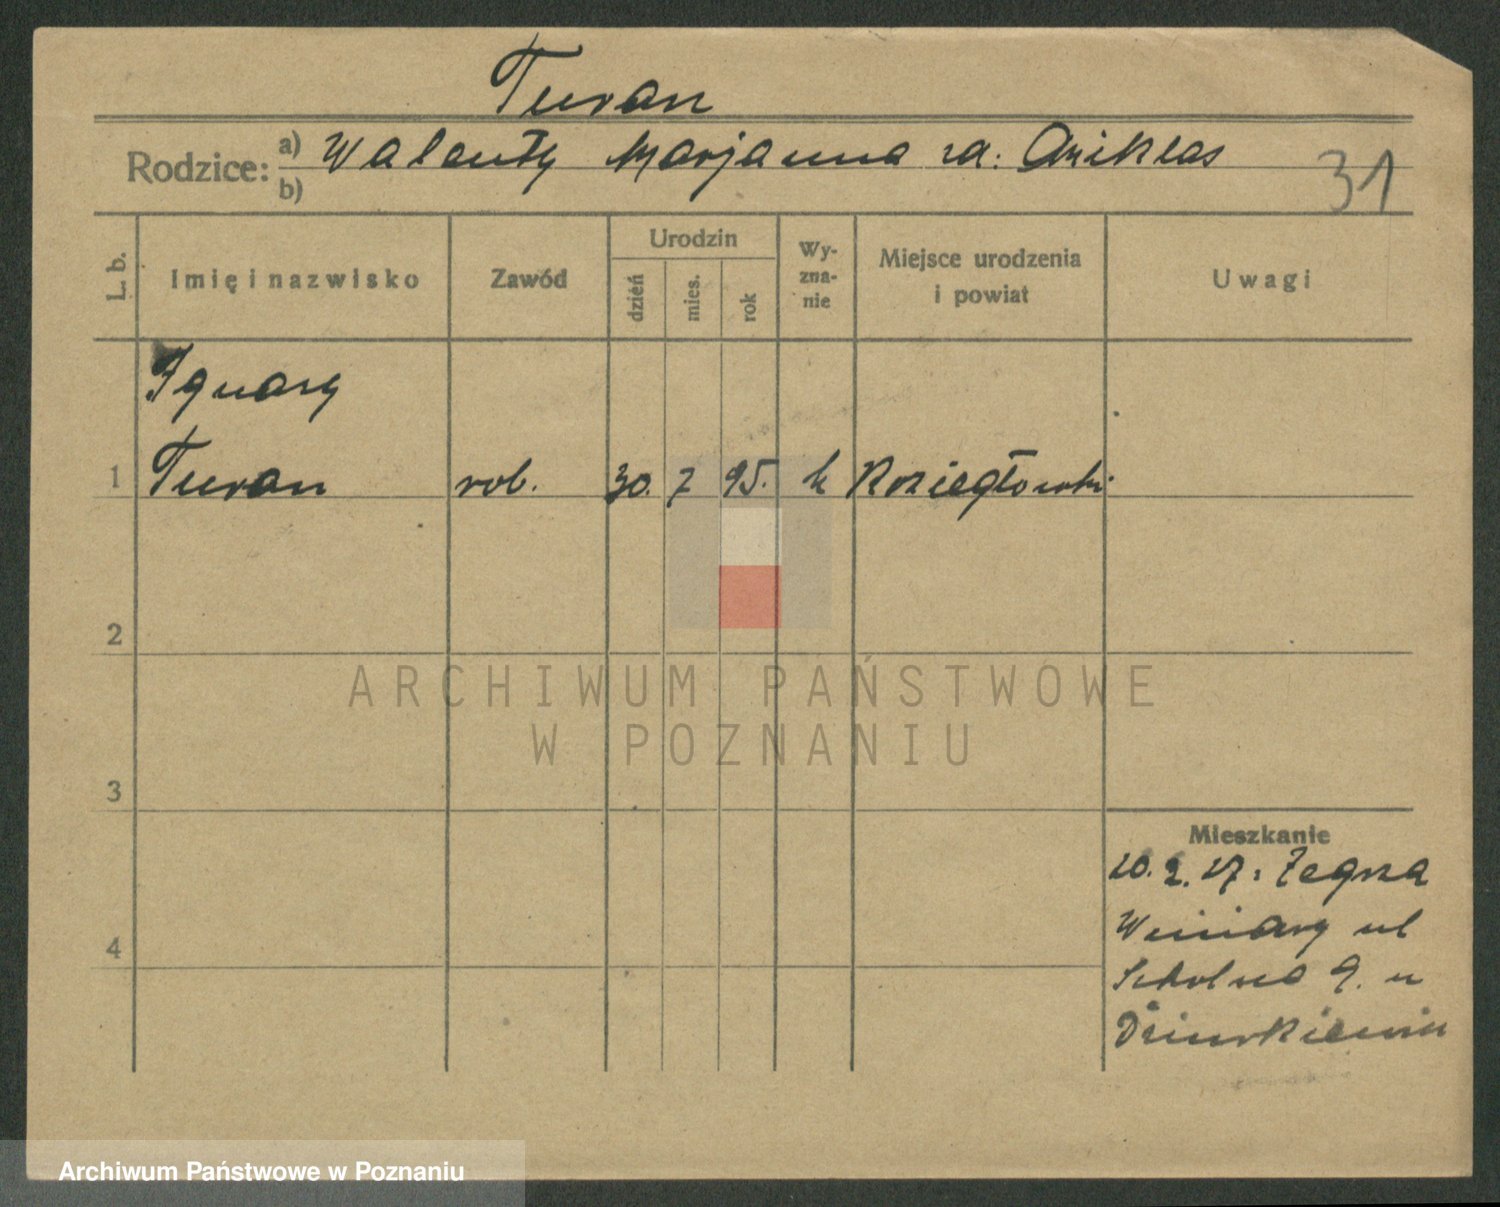 Turan
Rodzice: a) Walenty Marjanna za:
b)
31
L. b. Imię i nazwisko Zawód Urodzin dzień mies. rok Wy-zna-nie Miejsce urodzenia i powiat Uwagi
Ignacy
1 Turan rob. 30. 7 95. k Koziegłowki
2
ARCHIWUM PAŃSTWOWE
W POZNANIU
3
Mieszkanie
20. 2. 27: Zegrza
4 Winiary ul
Szkolna 9. u
Archiwum Państwowe w Poznaniu